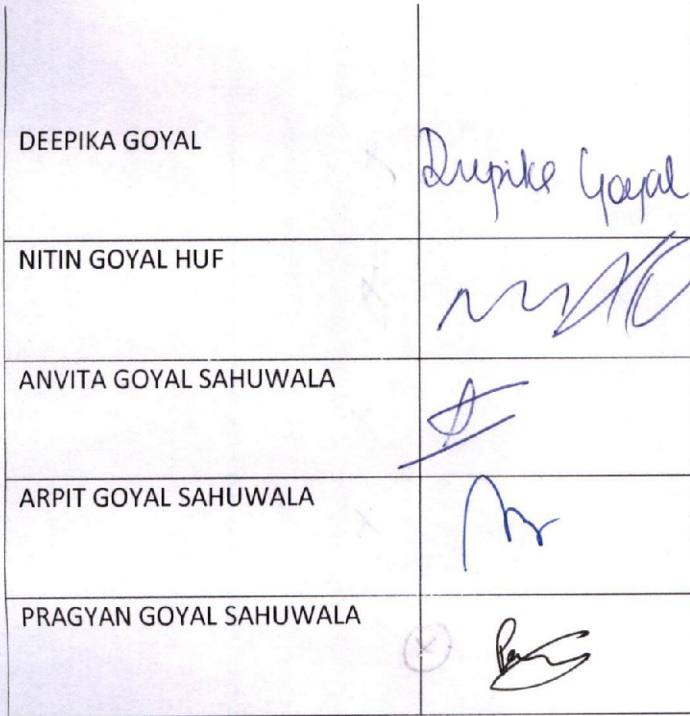 DEEPIKA GOYAL
Deepika Goyal
NITIN GOYAL HUF
ANVITA GOYAL SAHUWALA
ARPIT GOYAL SAHUWALA
PRAGYAN GOYAL SAHUWALA